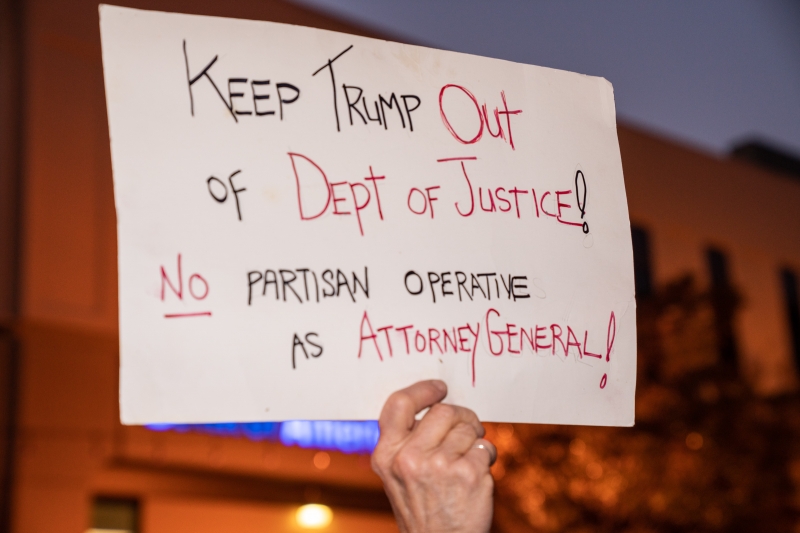 KEEP TRUMP OUT
OF DEPT OF JUSTICE!
NO PARTISAN OPERATIVE
AS ATTORNEY GENERAL!